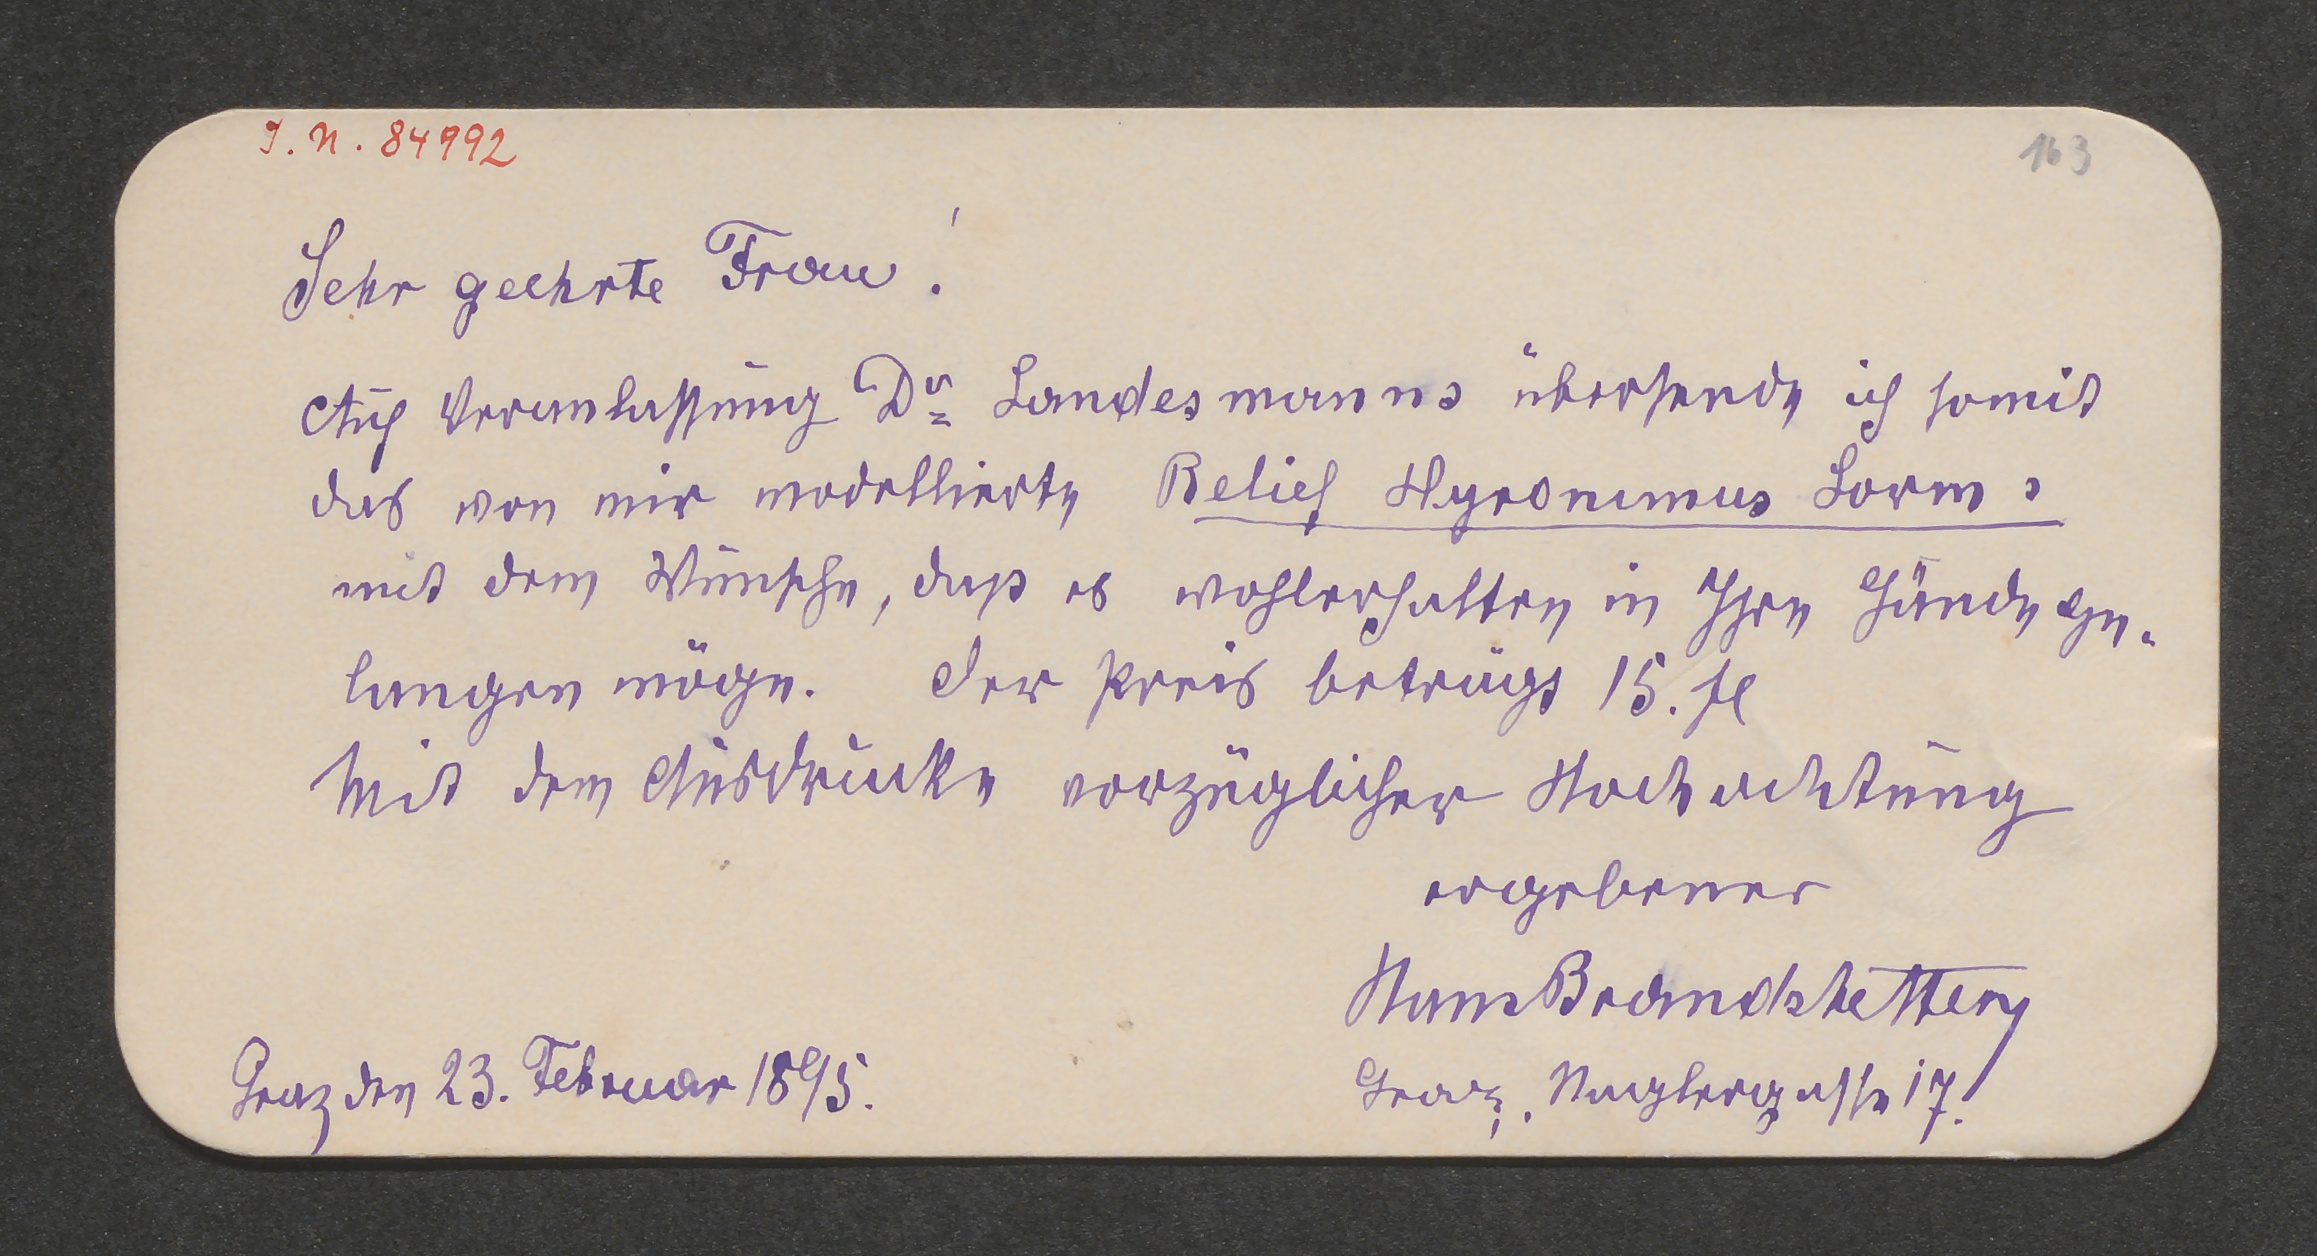 I. N. 84992
163
Sehr geehrte Frau!
Auf Veranlassung Dr Landesmanns übersende ich somit
das von mir modellierte Relief Hyronimus Lorms
mit dem Wunsche, daß es wohlerhalten in Ihre Hände ge-
langen möge. Der Preis beträgt 15. fl
Mit dem Ausdrucke vorzüglicher Hochachtung
ergebener
Hans Brandstetter
Graz den 23. Februar 1895.
Graz, Naglergasse 17.